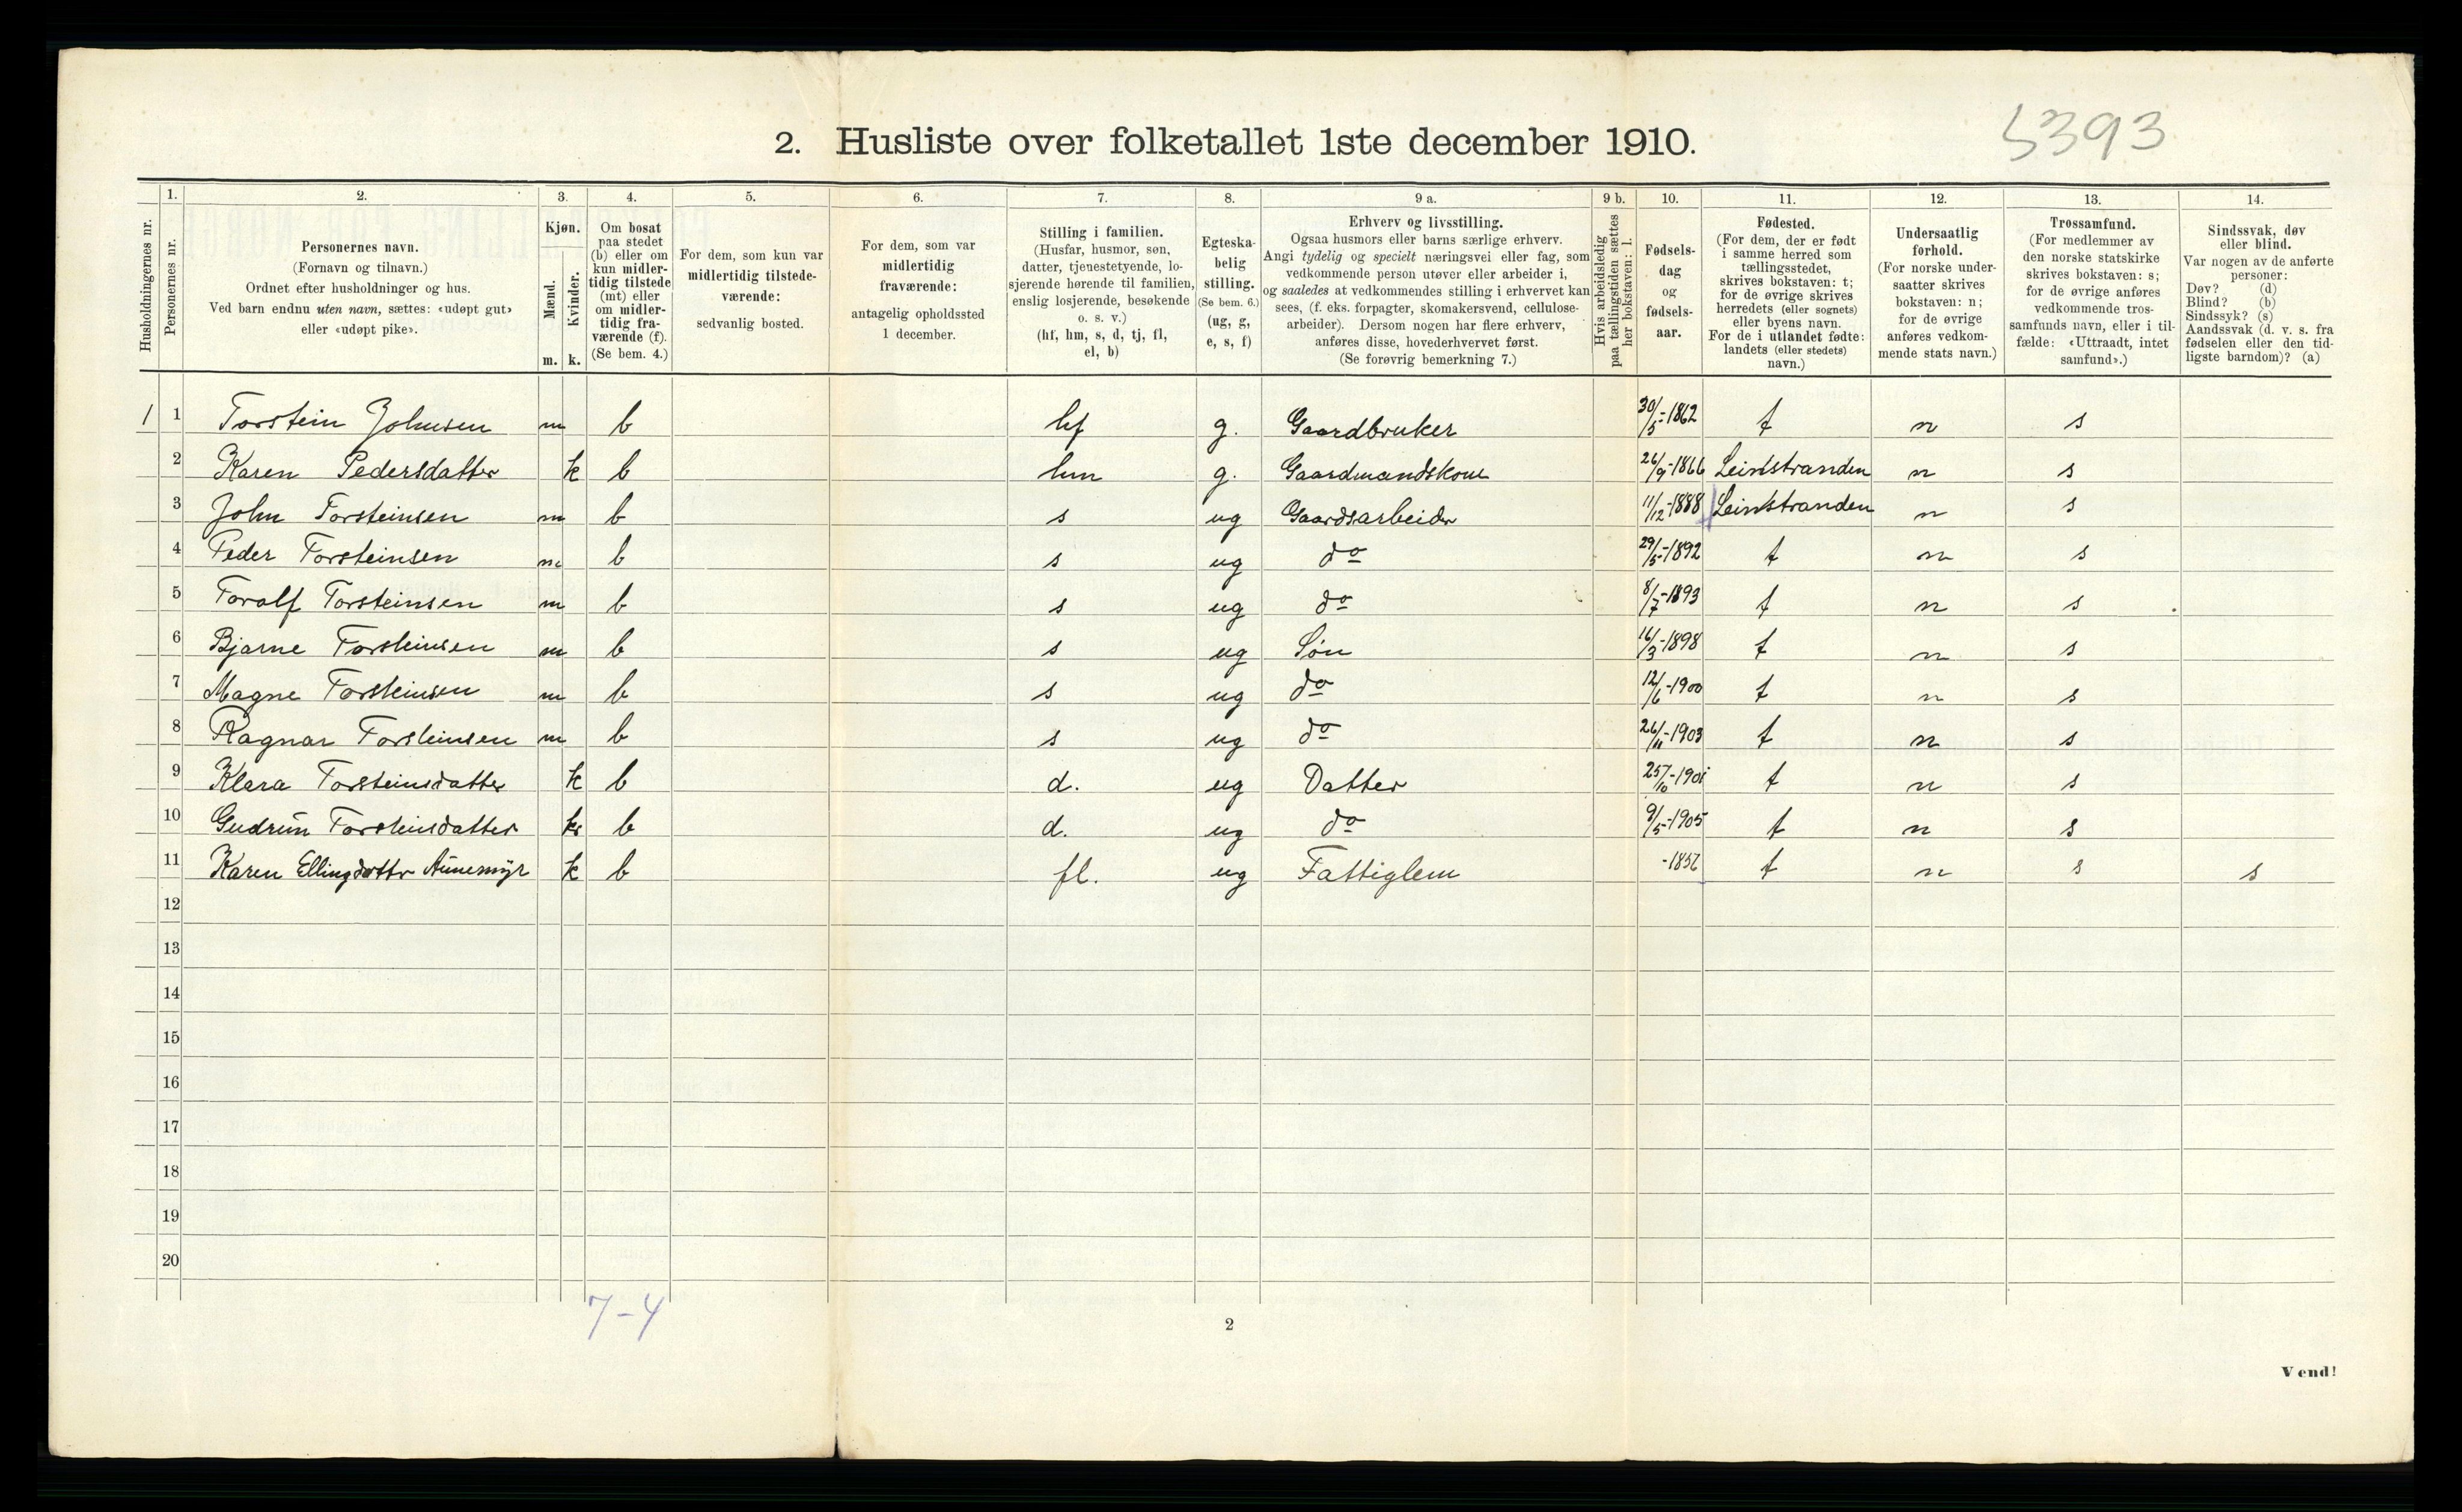 5393
2. Husliste over folketallet 1ste december 1910.
Husholdningernes nr.
1. Personernes nr.
2. Personernes navn. (Fornavn og tilnavn.) Ordnet efter husholdninger og hus. Ved barn endnu uten navn, sættes: «udøpt gut» eller «udøpt pike».
3. Kjøn. Mænd. m. Kvinder. k.
4. Om bosat paa stedet (b) eller om kun midlertidig tilstede (mt) eller om midlertidig fraværende (f). (Se bem. 4.)
5. For dem, som kun var midlertidig tilstedeværende: sedvanlig bosted.
6. For dem, som var midlertidig fraværende: antagelig opholdssted 1 december.
7. Stilling i familien. (Husfar, husmor, søn, datter, tjenestetyende, losjerende hørende til familien, enslig losjerende, besøkende o. s. v.) (hf, hm, s, d, tj, fl, el, b)
8. Egteskabelig stilling. (Se bem. 6.) (ug, g, e, s, f)
9 a. Erhverv og livsstilling. Ogsaa husmors eller barns særlige erhverv. Angi tydelig og specielt næringsvei eller fag, som vedkommende person utøver eller arbeider i, og saaledes at vedkommendes stilling i erhvervet kan sees, (f. eks. forpagter, skomakersvend, cellulosearbeider). Dersom nogen har flere erhverv, anføres disse, hovederhvervet først. (Se forøvrig bemerkning 7.)
9 b. Hvis arbeidsledig paa tællingstiden sættes her bokstaven: l.
10. Fødselsdag og fødselsaar.
11. Fødested. (For dem, der er født i samme herred som tællingsstedet, skrives bokstaven: t; for de øvrige skrives herredets (eller sognets) eller byens navn. For de i utlandet fødte: landets (eller stedets) navn.)
12. Undersaatlig forhold. (For norske undersaatter skrives bokstaven: n; for de øvrige anføres vedkommende stats navn.)
13. Trossamfund. (For medlemmer av den norske statskirke skrives bokstaven: s; for de øvrige anføres vedkommende trossamfunds navn, eller i tilfælde: «Uttraadt, intet samfund».)
14. Sindssvak, døv eller blind. Var nogen av de anførte personer: Døv? (d) Blind? (b) Sindssyk? (s) Aandssvak (d. v. s. fra fødselen eller den tidligste barndom)? (a)
1 1 Torstein Johnsen m b hf g. Gaardbruker 30/5-1862 t n s
2 Karen Pedersdatter k b hm g. Gaardmandskone 26/9-1866 Leinstranden n s
3 John Torsteinsen m b s ug Gaardsarbeider 11/12-1888 Leinstranden n s
4 Peder Torsteinsen m b s ug do 29/5-1892 t n s
5 Toralf Torsteinsen m b s ug do 8/7-1893 t n s
6 Bjarne Torsteinsen m b s ug Søn 16/3-1898 t n s
7 Magne Torsteinsen m b s ug do 12/6-1900 t n s
8 Ragnar Torsteinsen m b s ug do 26/11-1903 t n s
9 Klara Torsteinsdatter k b d. ug Datter 25/10 t n s
10 Gudrun Torsteinsdatter k b d. ug do 9/5-1905 t n s
11 Karen Ellingsdatter Aunemyr k b fl. ug Fattiglem t n s s
12
13
14
15
16
17
18
19
20
7-4
2
Vend!